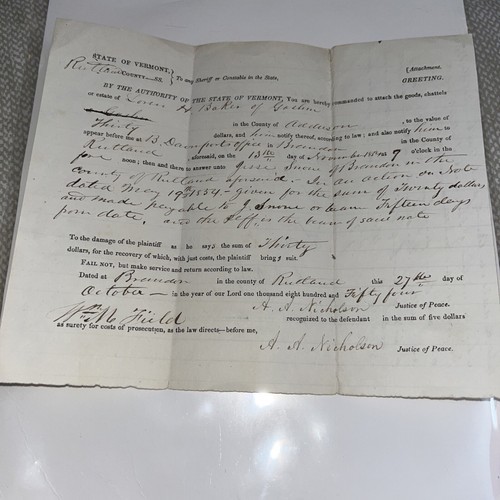 STATE OF VERMONT, [Attachment.
Rutland COUNTY—SS. } To any Sheriff or Constable in the State, GREETING.
BY THE AUTHORITY OF THE STATE OF VERMONT, You are hereby commanded to attach the goods, chattels
or estate of Loren H Baker of Goshen
in the County of Addison, to the value of
Thirty dollars, and him notify thereof according to law; and also notify him to
appear before me at B. Davenport office in Brandon in the County of
Rutland aforesaid, on the 13th day of November 1854 at 9 o'clock in the
fore noon; then and there to answer unto Jesse Snow of Brandon in the
county of Rutland aforesaid. In an action on Note
dated May 19th 1854 given for the sum of Twenty dollars
and made payable to J. Snow or bearer Fifteen days
from date, and the Plff. is the bearer of said note
To the damage of the plaintiff as he says the sum of Thirty
dollars, for the recovery of which, with just costs, the plaintiff brings suit.
FAIL NOT, but make service and return according to law.
Dated at Brandon in the county of Rutland this 27th day of
October in the year of our Lord one thousand eight hundred and Fifty four
A. A. Nicholson Justice of Peace.
Wm. M. Field recognized to the defendant in the sum of five dollars
as surety for costs of prosecution, as the law directs—before me,
A. A. Nicholson Justice of Peace.